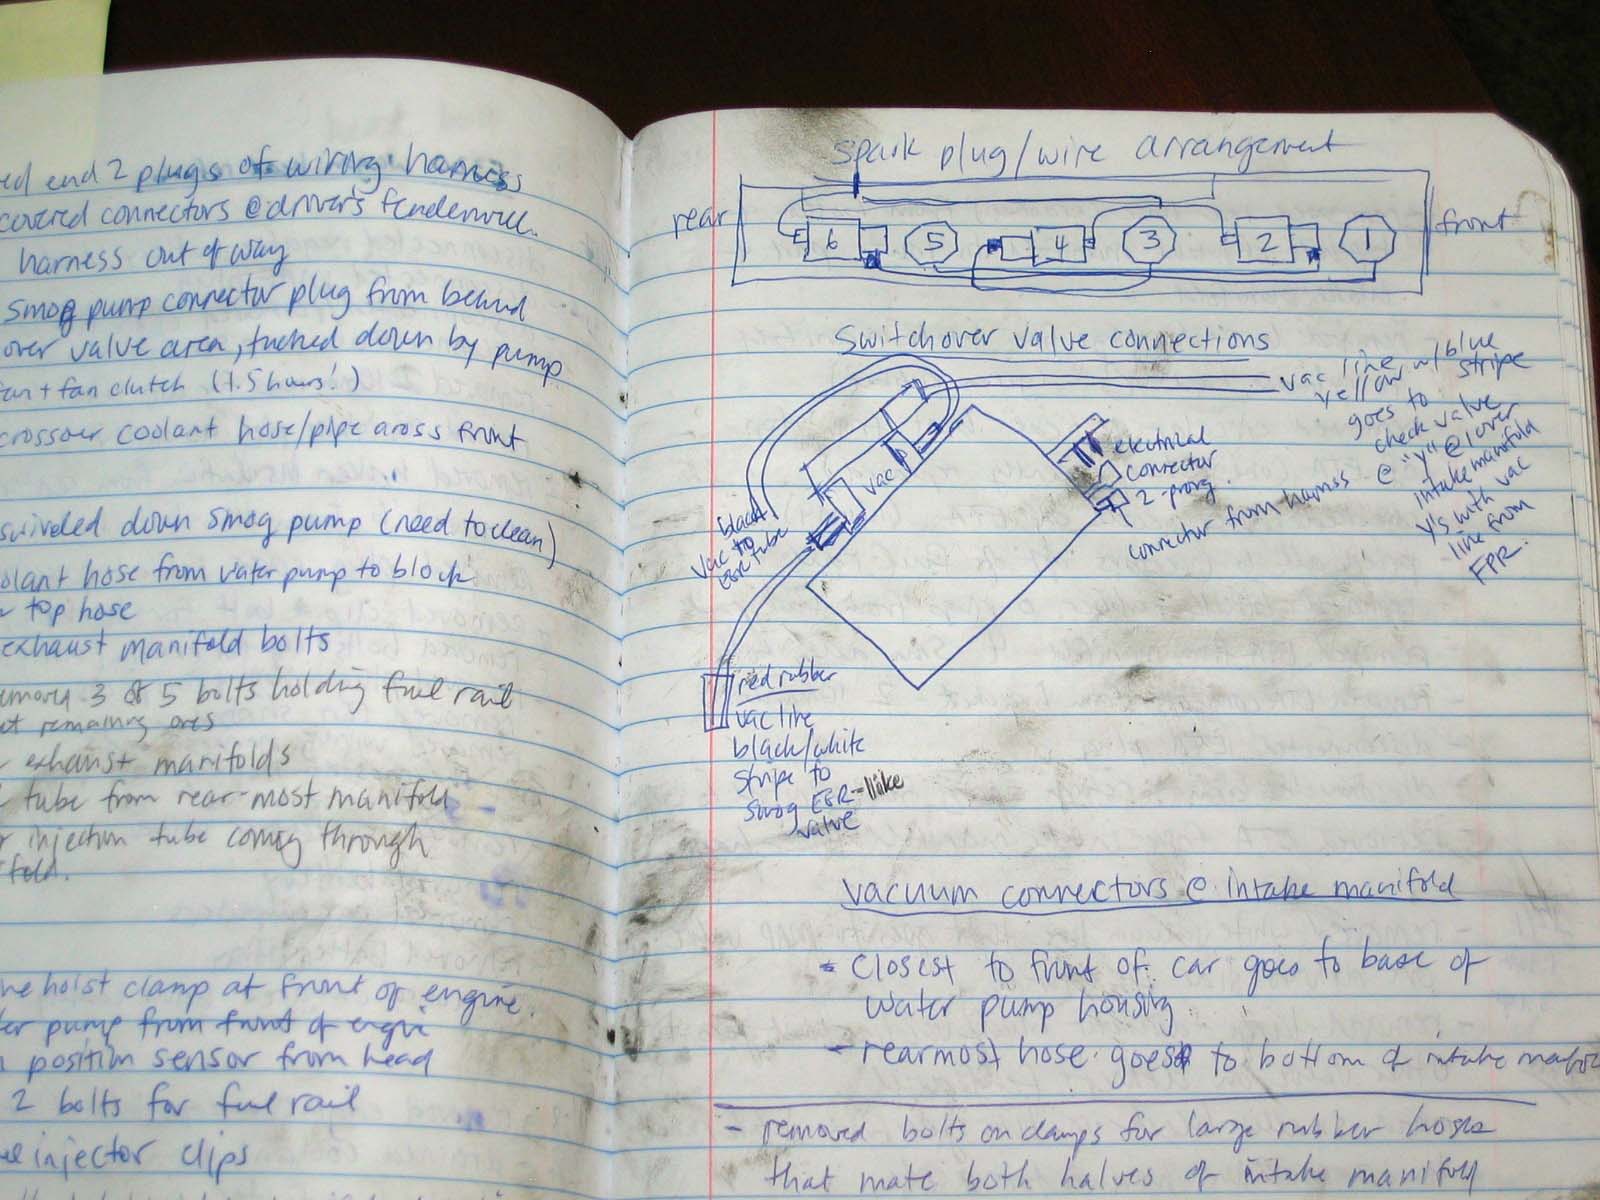 ed end 2 plugs of wiring harness
covered connectors @ driver's fenderwell.
harness out of way
smog pump connector plug from behind
over valve area, tucked down by pump
fan + fan clutch (1.5 hours!)
crossover coolant hose/pipe aross front
swiveled down smog pump (need to clean)
olant hose from water pump to block
top hose
exhaust manifold bolts
3 of 5 bolts holding fuel rail
remaining ones
exhaust manifolds
tube from rear-most manifold
injection tube coming through
fold.
hoist clamp at front of engine.
er pump from front of engi
position sensor from head
2 bolts for fuel rail
injector clips
Spark plug/wire arrangement
rear
6 5 4 3 2 1
front
Switchover valve connections
vac line
yellow w/ blue
stripe
goes to
check valve
@ "y" @ over
intake manifold
y's with vac
line from
FPR.
electrical
connector
2-prong.
connector from harness
vac
black
vac to
EGR tube
red rubber
vac line
black/white
stripe to
smog EGR-like
valve
vacuum connectors @ intake manifold
- closest to front of car goes to base of
water pump housing
- rearmost hose goes to bottom of intake
- removed bolts on clamps for large rubber hoses
that mate both halves of intake manifold